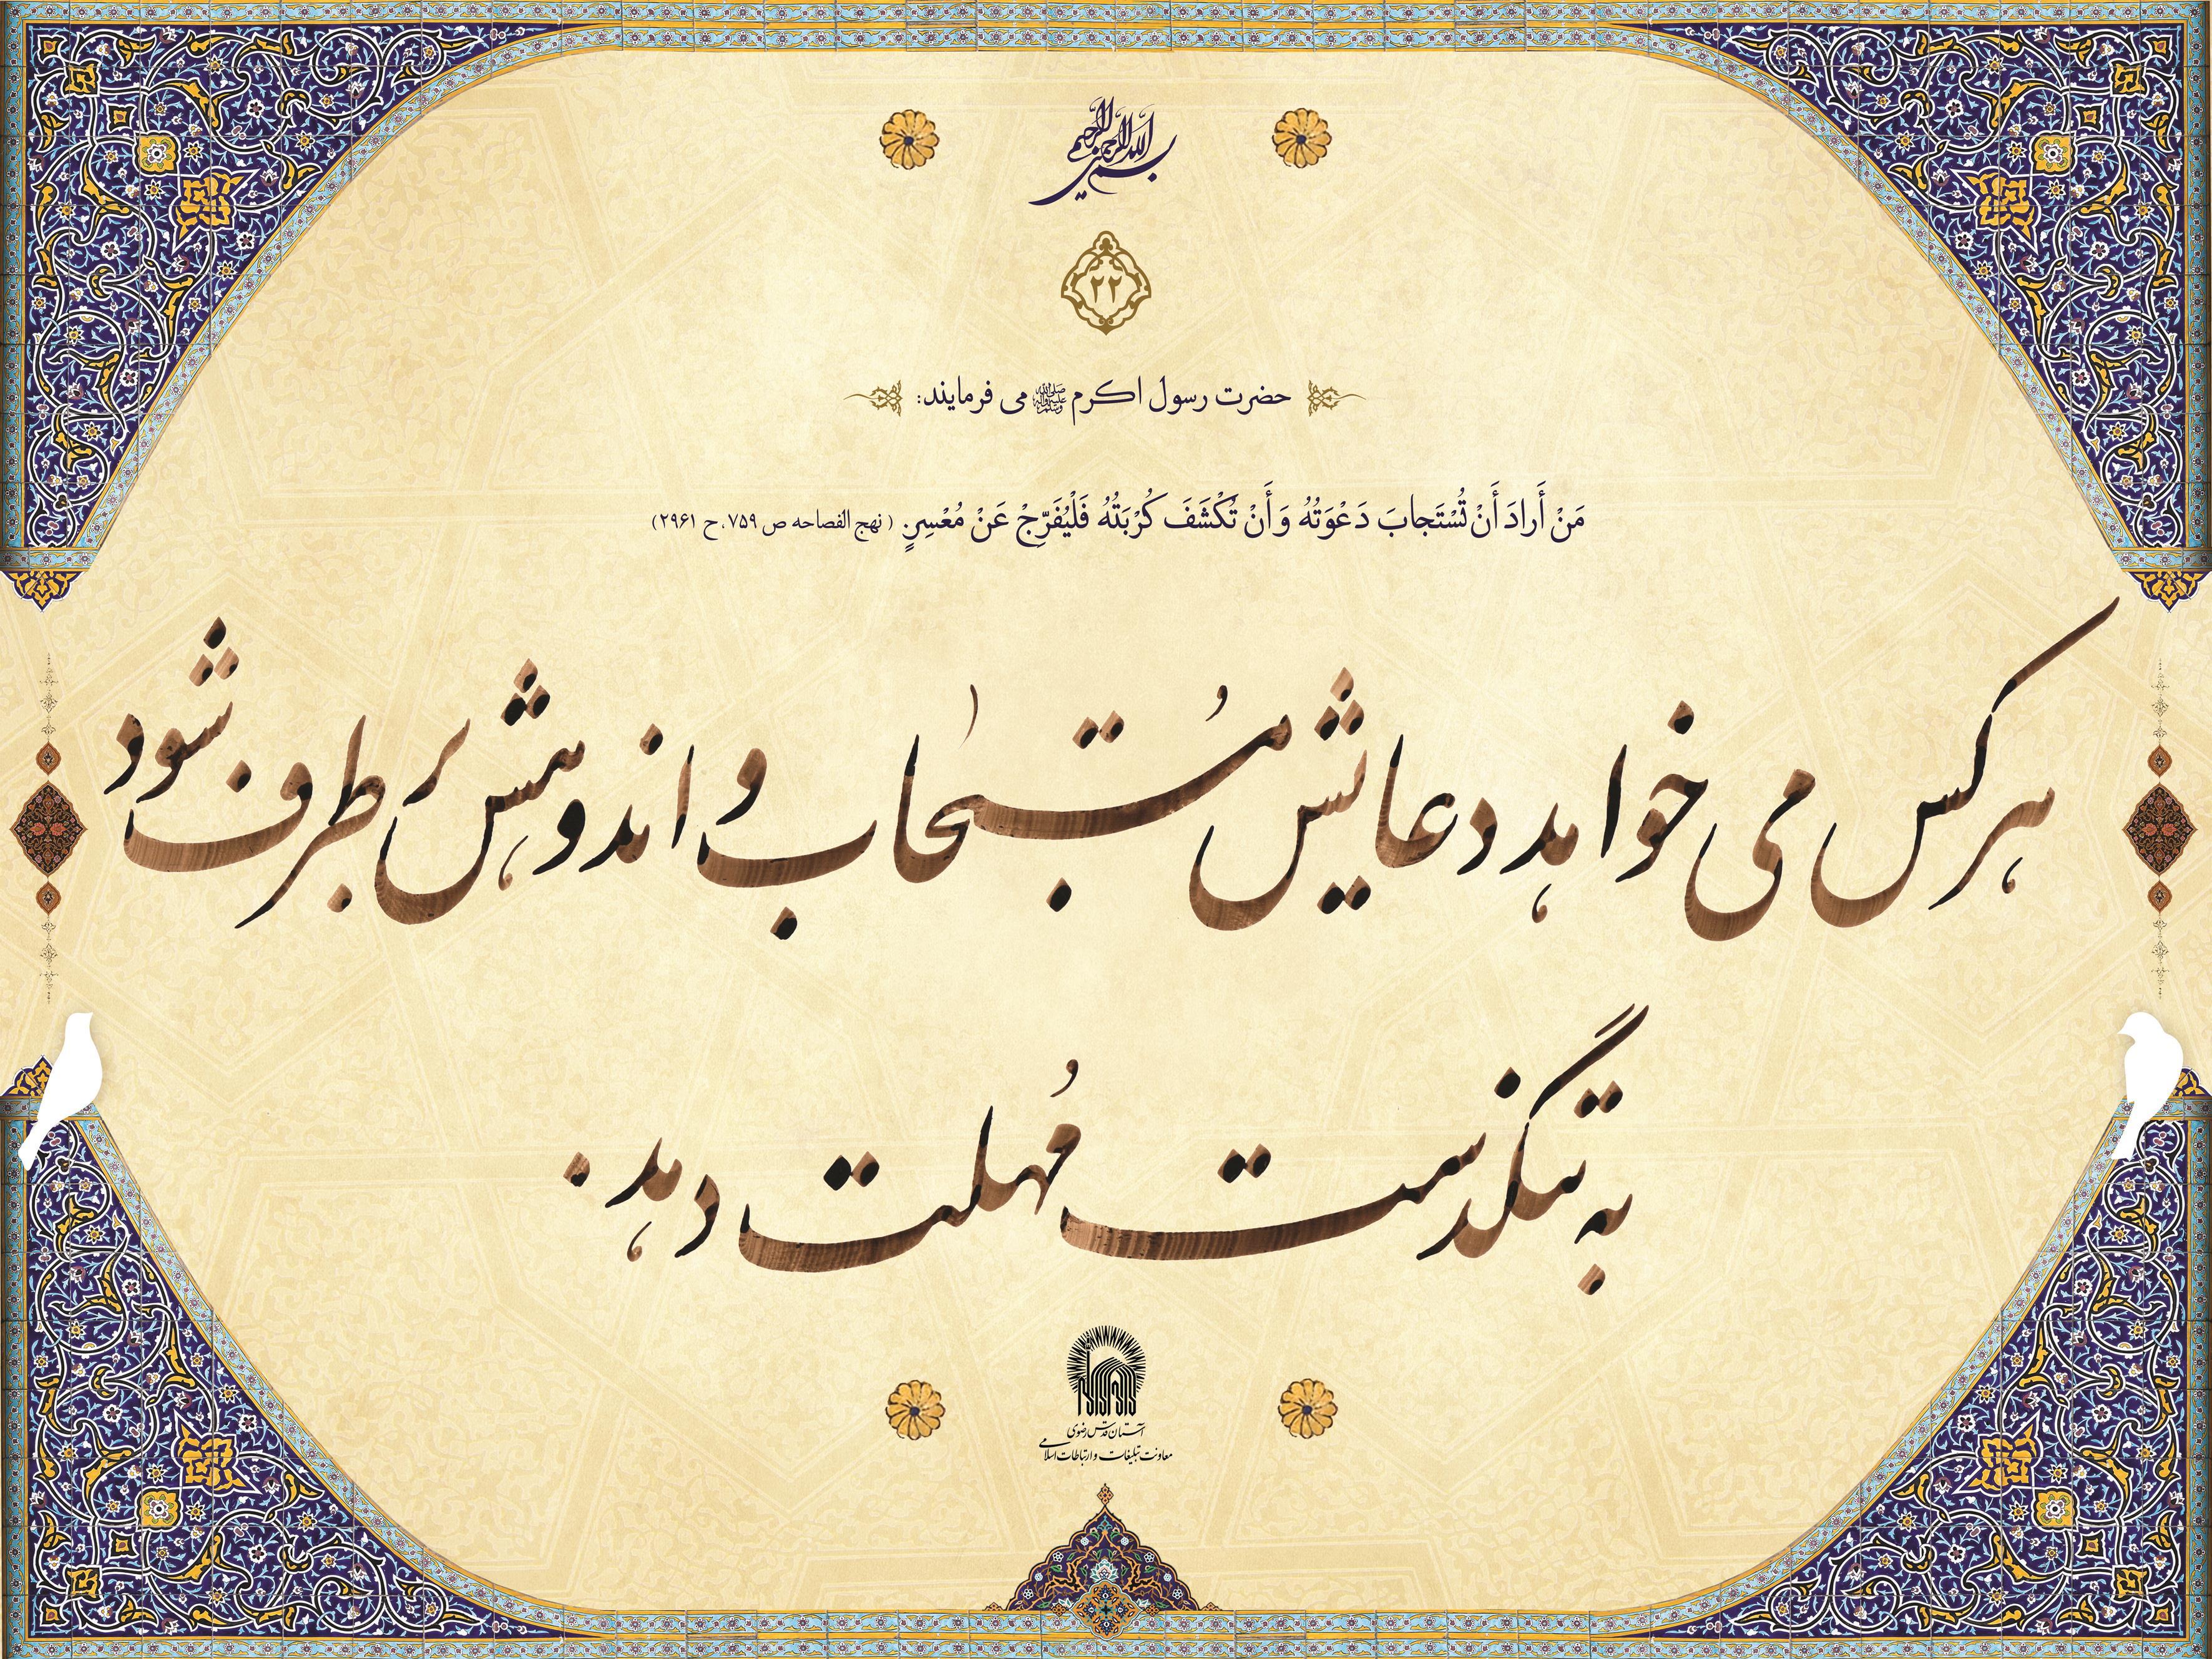 بسم الله الرحمن الرحیم
۲۲
حضرت رسول اکرم ﷺ می فرمایند:
مَنْ أَرادَ أَنْ تُسْتَجابَ دَعْوَتُهُ وَ أَنْ تُكْشَفَ كُرْبَتُهُ فَلْيُفَرِّجْ عَنْ مُعْسِرٍ. (نهج الفصاحه ص ۷۵۹، ح ۲۹۶۱)
هرکس می خواهد دعایش مُستجاب و اندوهش برطرف شود
به تنگدست مُهلت دهد.
آستان قدس رضوی
معاونت تبلیغات و ارتباطات اسلامی